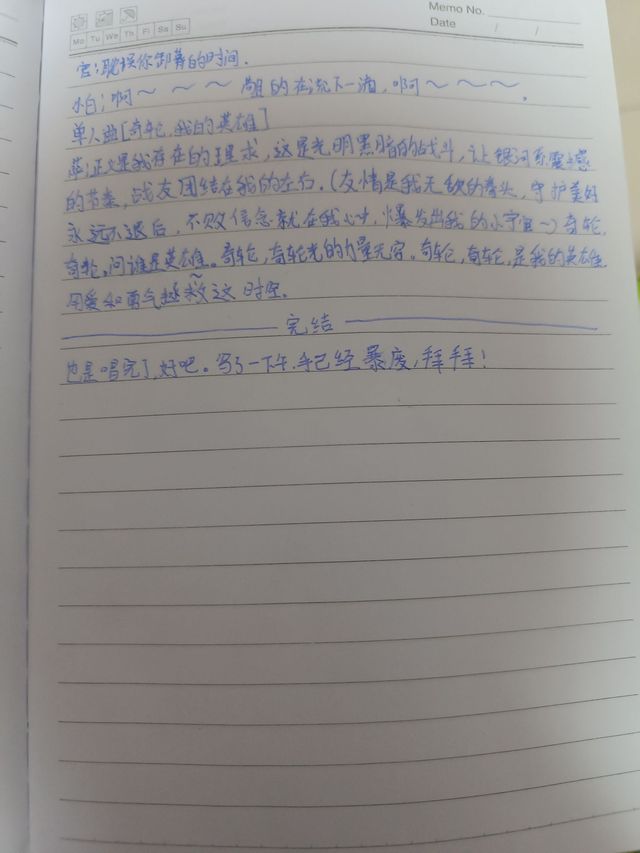 Memo No.
Mo Tu We Th Fr Sa Su
Date / /
宫:耽误你卸幕的时间.
小白:啊~~~~ 的在流下一滴,啊~~~~.
单人曲[奇轮,我的英雄]
正义是我存在的理求,这是光明黑暗的战斗,让银河系震撼
的节奏,战友团结在我的左右.(友情是我无敌的拳头,守护美好
永远不退后,不败信念就在我心中,爆发出我的小宇宙~)奇轮,
奇轮,问谁是英雄。奇轮,奇轮光的力量无穷。奇轮,奇轮,是我的英雄
用爱和勇气拯救这时空.
完结
也是唱完了,好吧。写了一下午,手已经暴废,拜拜!